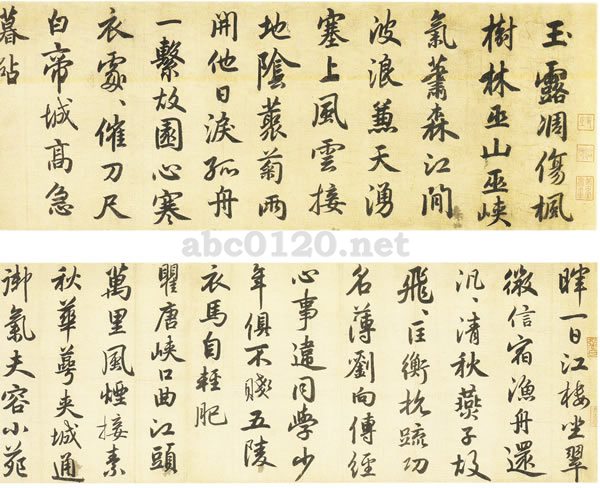 玉露凋傷楓
樹林巫山巫峽
氣蕭森江間
波浪兼天湧
塞上風雲接
地陰叢菊兩
開他日淚孤舟
一繫故園心寒
衣處、催刀尺
白帝城高急
暮砧
abc0120.net
暉一日江樓坐翠
微信宿漁舟還
汎、清秋燕子故
飛、匡衡抗疏功
名薄劉向傳經
心事違同學少
年俱不賤五陵
衣馬自輕肥
瞿唐峽口曲江頭
萬里風煙接素
秋華萼夾城通
御氣夫容小苑